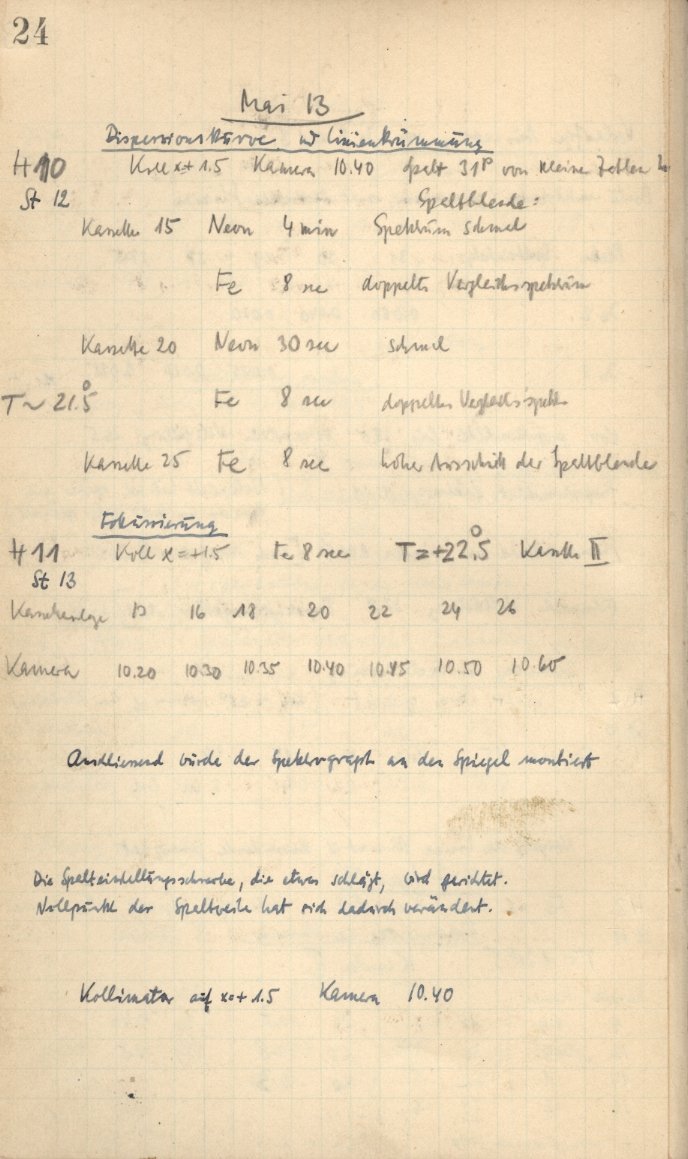 24
Mai 13
Dispersionskurve und Linienkrümmung
H 10 Koll x+1.5 Kamera 10.40 Spalt 31p von kleinen Zahlen
St 12 Spaltblende:
Kassette 15 Neon 4 min Spektrum schmal
Fe 8 sec doppeltes Vergleichsspektrum
Kassette 20 Neon 30 sec schmal
T ~ 21.5° Fe 8 sec doppeltes Vergleichsspektr
Kassette 25 Fe 8 sec hoher Ausschnitt der Spaltblende
Fokussierung
H 11 Koll x = +1.5 Fe 8 sec T = +22.5° Kassette II
St 13
Kassettenlage 16 18 20 22 24 26
Kamera 10.20 10.30 10.35 10.40 10.45 10.50 10.60
Anschliessend wurde der Spektrograph an den Spiegel montiert
Die Spalteinstellungsschraube, die etwas schlägt, wird gerichtet.
Nullpunkt der Spaltweite hat sich dadurch verändert.
Kollimator auf x=+1.5 Kamera 10.40